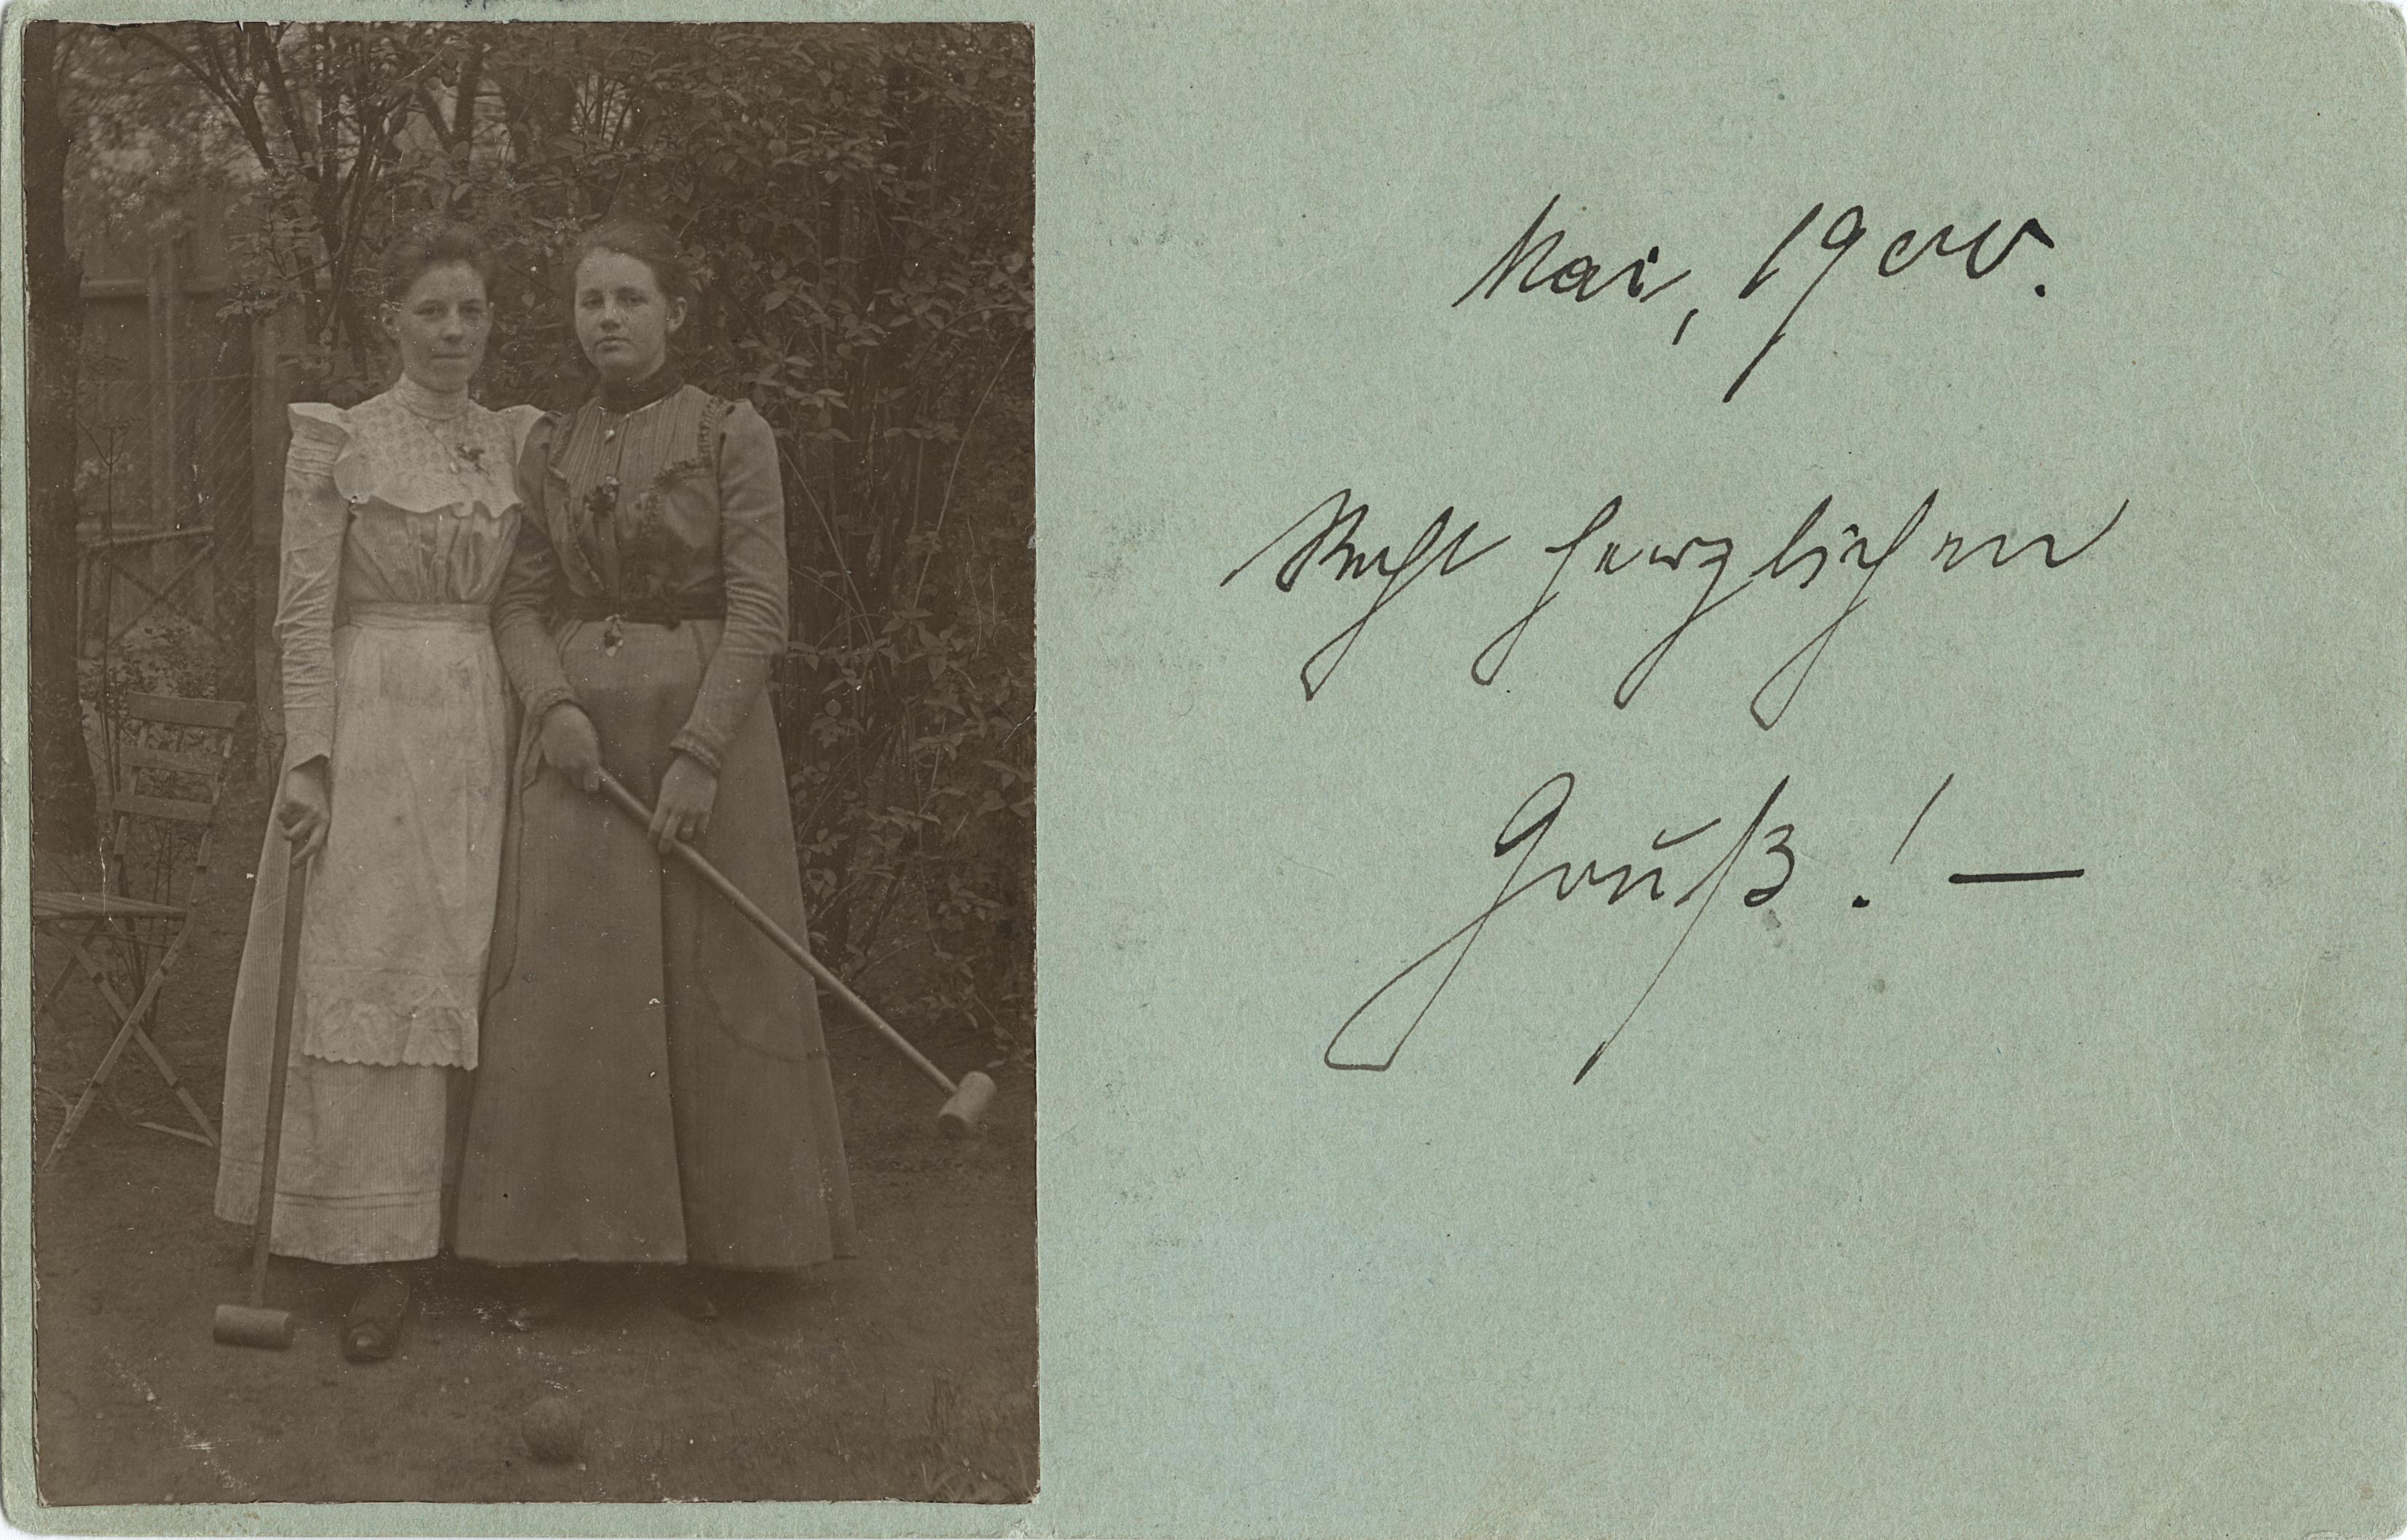 Mai, 1900.
Recht herzlichen
Gruß! —